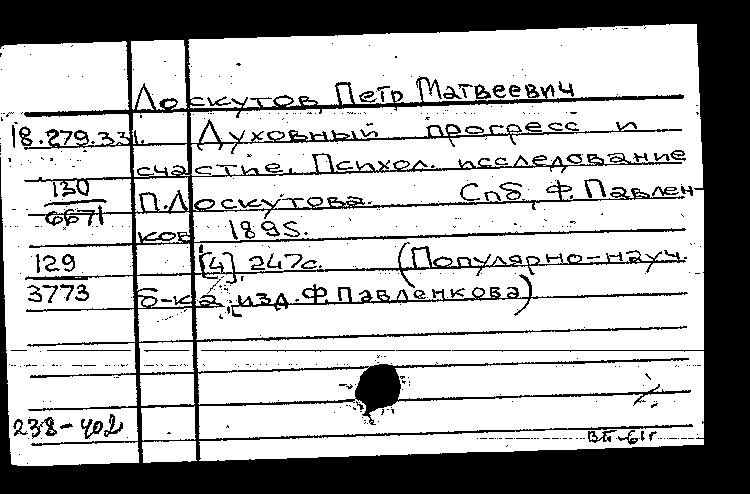 Лоскутов, Петр Матвеевич
18.279.331. Духовный прогресс и
счастие. Психол. исследование
130
6671
П. Лоскутова. Спб, Ф. Павлен-
ков 1895.
129
3773
[4], 247с. (Популярно-науч.
б-ка изд. Ф. Павленкова)
238-402